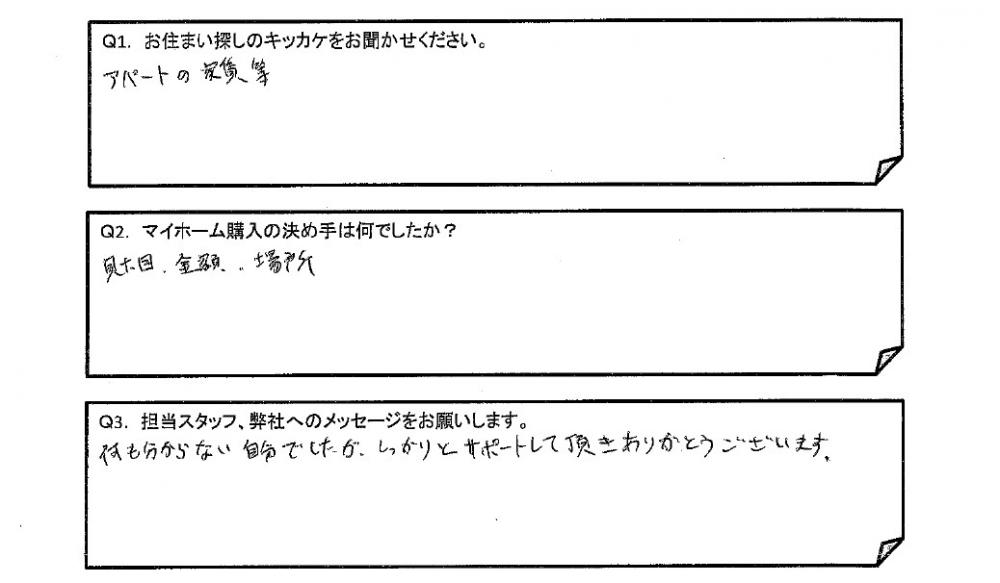 Q1. お住まい探しのキッカケをお聞かせください。
アパートの家賃、等
Q2. マイホーム購入の決め手は何でしたか？
見た目、金額、場所
Q3. 担当スタッフ、弊社へのメッセージをお願いします。
何も分からない自分でしたが、しっかりとサポートして頂きありがとうございます。